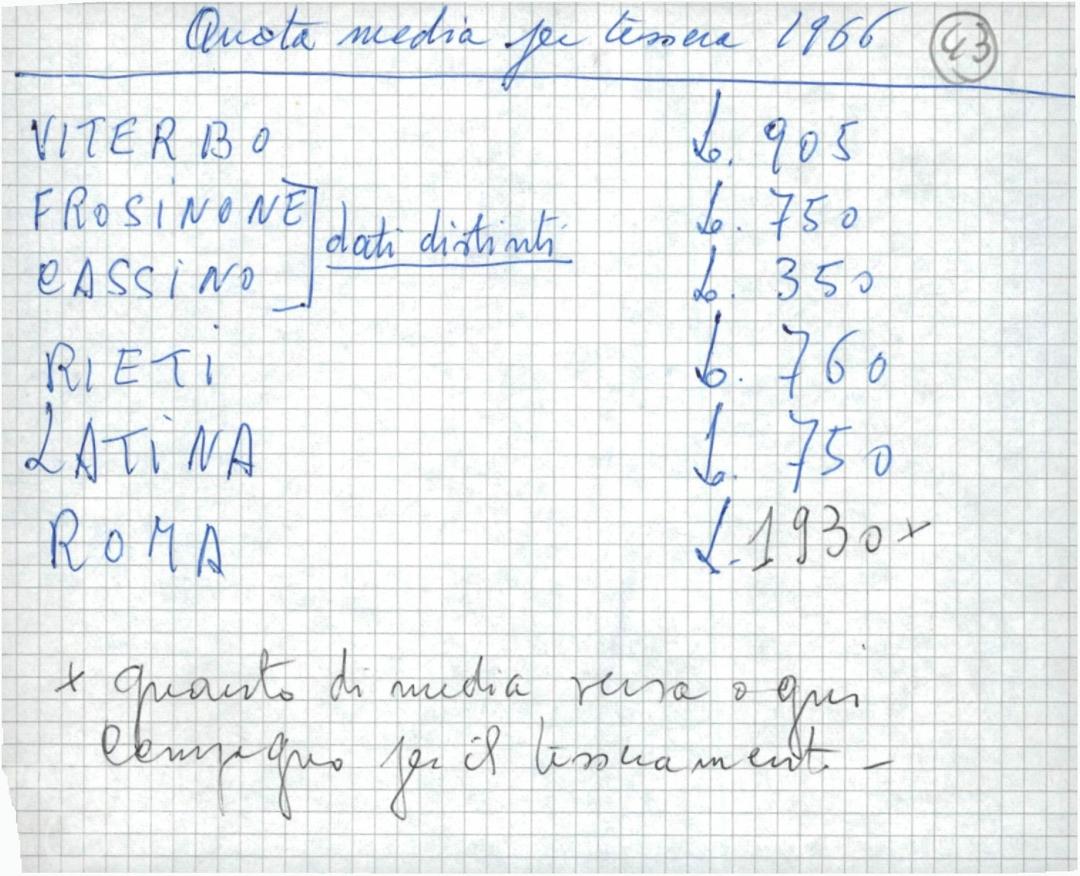 Quota media per tessera 1966 43
VITERBO L. 905
FROSINONE L. 750
dati distinti
CASSINO L. 350
RIETI L. 760
LATINA L. 750
ROMA L. 1930 x
x quanto di media versa ogni
compagno per il tesseramento -